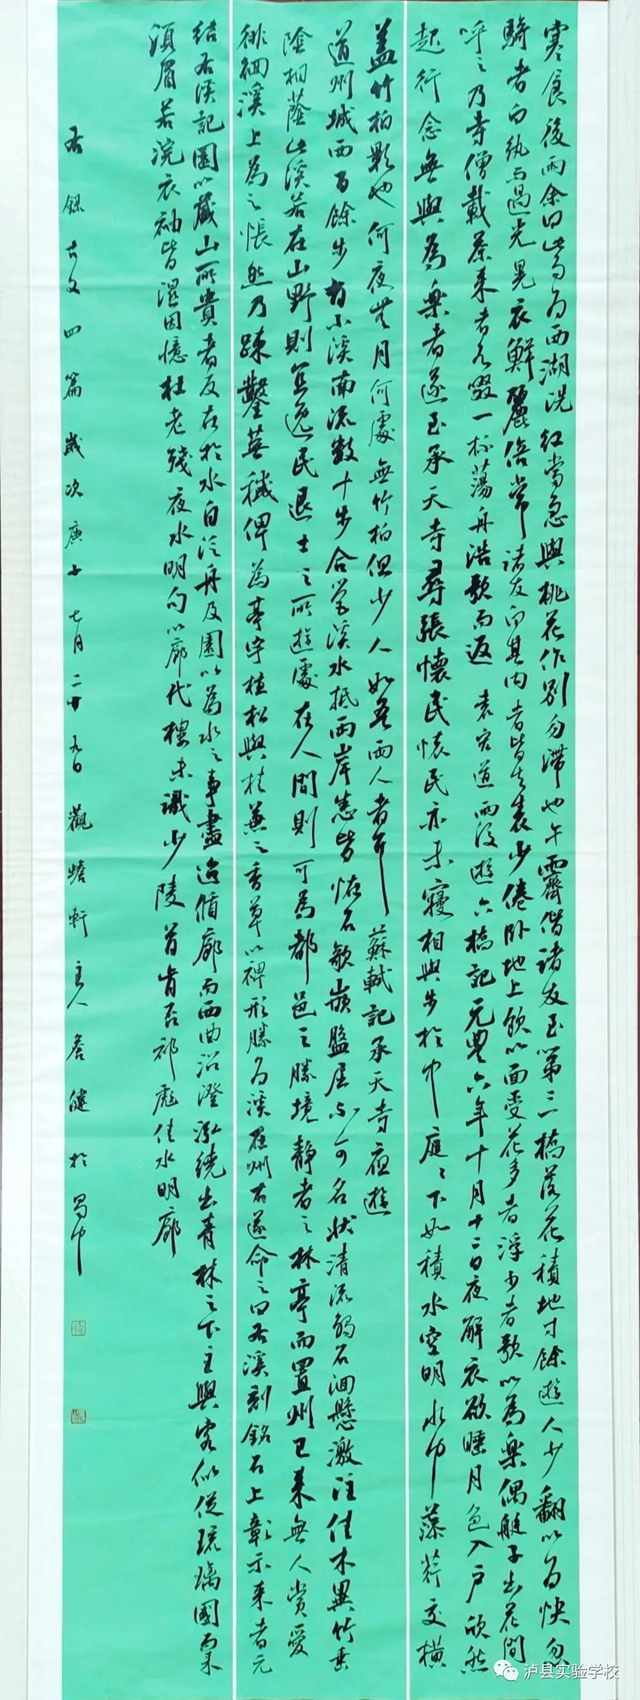 寒食後雨余曰此為西湖洗紅當急與桃花作別勿滯也午霽偕諸友至第三橋落花積地寸餘遊人少翻以為快忽
騎者白紈而過光晃衣鮮麗倍常諸友白其內者皆去表少倦卧地上飲以面受花多者浮少者歌以為樂偶艇子出花間
呼之乃寺僧載茶來者各啜一杯蕩舟浩歌而返 袁宏道雨後遊六橋記元豐六年十月十二日夜解衣欲睡月色入戶欣然
起行念無與為樂者遂至承天寺尋張懷民懷民亦未寢相與步於中庭〻下如積水空明水中藻荇交橫
蓋竹柏影也何夜無月何處無竹柏但少人如吾兩人者耳 蘇軾記承天寺夜遊
道州城西百餘步有小溪南流數十步合營溪水抵兩岸悉皆怪石欹嵌盤屈不可名狀清流觸石洄懸激注佳木異竹垂
陰相蔭此溪若在山野則宜逸民退士之所遊處在人間則可為都邑之勝境靜者之林亭而置州已來無人賞愛
徘徊溪上為之悵然乃疎鑿蕪穢俾為亭宇植松與桂兼之香草以裨形勝為溪在州右遂命之曰右溪刻銘石上彰示來者元
結右溪記園以藏山所貴者反在於水自泛舟及園以為水之事盡迨循廊而西曲沼澄泓繞出青林之下主與客似從琉璃國而來
須眉若浣衣袖皆濕因憶杜老殘夜水明句以廊代樓未識少陵首肯否祁彪佳水明廊
右錄古文四篇歲次庚子七月二十九日觀蟾軒主人詹健於蜀中
泸县实验学校